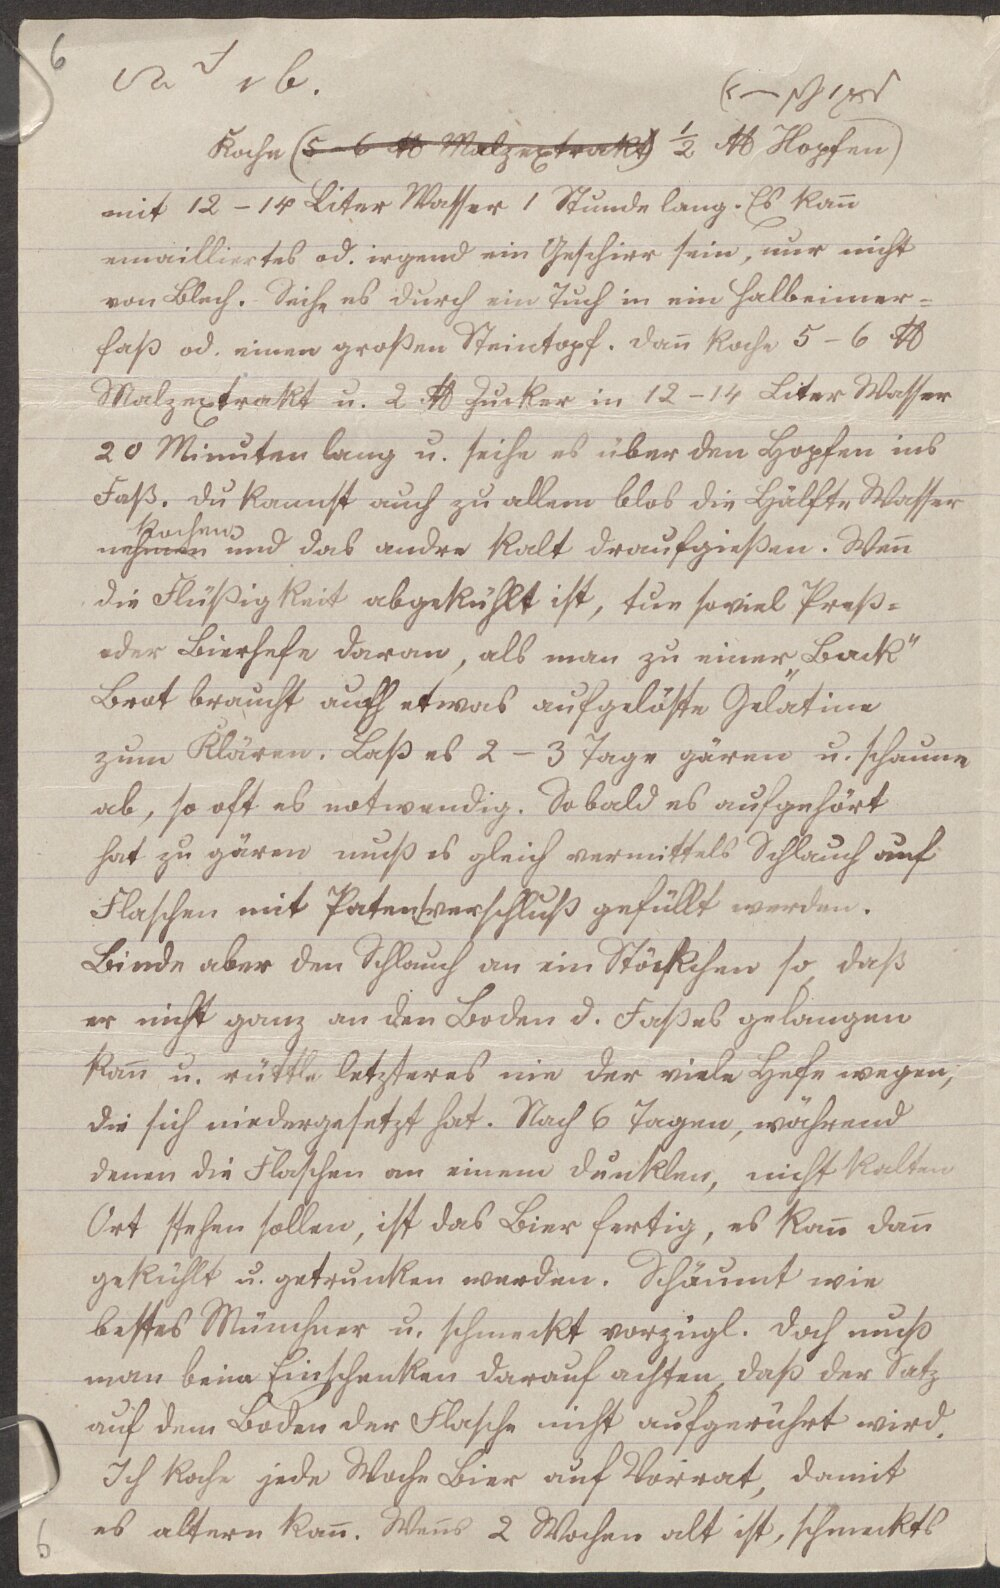 6
b.
Koche (5-6 ℔ Malzextrakt) ½ ℔ Hopfen)
mit 12 – 14 Liter Wasser 1 Stunde lang. Es kan̄
emailliertes od. irgend ein Geschirr sein, nur nicht
von Blech. Seihe es durch ein Tuch in ein Halbeimer=
faß od. einen großen Steintopf. Dan̄ koche 5 – 6 ℔
Malzextrakt u. 2 ℔ Zucker in 12 – 14 Liter Wasser
20 Minuten lang u. seihe es über den Hopfen ins
Faß. Du kannst auch zu allem blos die Hälfte Wasser
kochen
nehmen und das andre kalt draufgießen. Wen̄
die Flüßigkeit abgekühlt ist, tue soviel Preß=
oder Bierhefe daran, als man zu einer „Back"
Brot braucht auch etwas aufgelöste Gelatine
zum Klären. Laß es 2 – 3 Tage gären u. schaume
ab, so oft es notwendig. Sobald es aufgehört
hat zu gären muß es gleich vermittels Schlauch auf
Flaschen mit Patentverschluß gefüllt werden.
Binde aber den Schlauch an ein Stöckchen so, daß
er nicht ganz an den Boden d. Faßes gelangen
kan̄ u. rüttle letzteres nie der viele Hefe wegen,
die sich niedergesetzt hat. Nach 6 Tagen, während
denen die Flaschen an einem dunklen, nicht kalten
Ort stehen sollen, ist das Bier fertig, es kan̄ dan̄
gekühlt u. getrunken werden. Schäumt wie
bestes Münchner u. schmeckt vorzügl. Doch muß
man beim Einschenken darauf achten, daß der Satz
auf dem Boden der Flasche nicht aufgerührt wird.
Ich koche jede Woche Bier auf Vorrat, damit
es altern kan̄. Wen̄s 2 Wochen alt ist, schmeckts
6